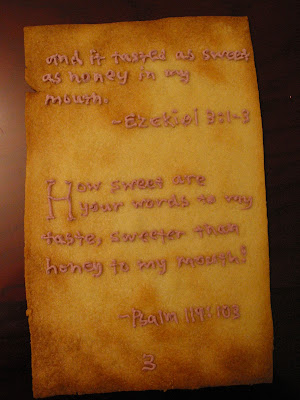 and it tasted as sweet
as honey in my
mouth.
~Ezekiel 3:1-3
How sweet are
your words to my
taste, sweeter than
honey to my mouth!
~Psalm 119:103
3